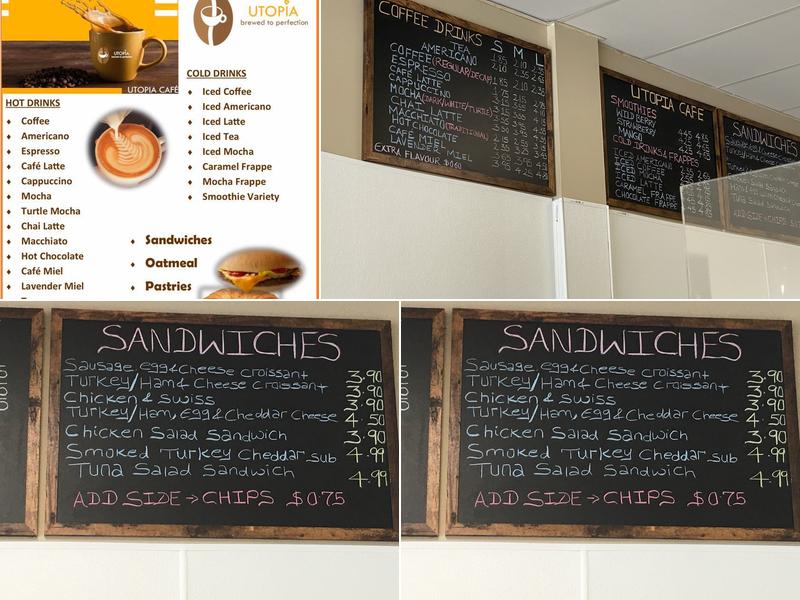 UTOPIA
brewed to perfection
UTOPIA
UTOPIA CAFÉ
HOT DRINKS
Coffee
Americano
Espresso
Café Latte
Cappuccino
Mocha
Turtle Mocha
Chai Latte
Macchiato
Hot Chocolate
Café Miel
Lavender Miel
COLD DRINKS
Iced Coffee
Iced Americano
Iced Latte
Iced Tea
Iced Mocha
Caramel Frappe
Mocha Frappe
Smoothie Variety
Sandwiches
Oatmeal
Pastries
COFFEE DRINKS S M L
TEA
AMERICANO
COFFEE (REGULAR/DECAF)
ESPRESSO
CAFE LATTE
CAPPUCCINO
MOCHA (DARK/WHITE/TURTLE)
CHAI LATTE
MACCHIATO (TRADITIONAL)
HOT CHOCOLATE
CAFÉ MIEL
LAVENDER MIEL
EXTRA FLAVOUR $0.60
UTOPIA CAFE
SMOOTHIES
WILD BERRY
STRAWBERRY
MANGO
COLD DRINKS & FRAPPES
ICED AMERICANO
ICED COFFEE
ICED MOCHA
ICED LATTE
CARAMEL FRAPPE
CHOCOLATE FRAPPE
SANDWICHES
ADD SIDE → CHIPS
SANDWICHES
Sausage, Egg & Cheese Croissant 3.90
Turkey/Ham & Cheese Croissant 3.90
Chicken & Swiss 3.90
Turkey/Ham, Egg & Cheddar Cheese 4.50
Chicken Salad Sandwich 3.90
Smoked Turkey Cheddar Sub 4.99
Tuna Salad Sandwich 4.99
ADD SIDE → CHIPS $0.75
SANDWICHES
Sausage, Egg & Cheese Croissant 3.90
Turkey/Ham & Cheese Croissant 3.90
Chicken & Swiss 3.90
Turkey/Ham, Egg & Cheddar Cheese 4.50
Chicken Salad Sandwich 3.90
Smoked Turkey Cheddar Sub 4.99
Tuna Salad Sandwich 4.99
ADD SIDE → CHIPS $0.75